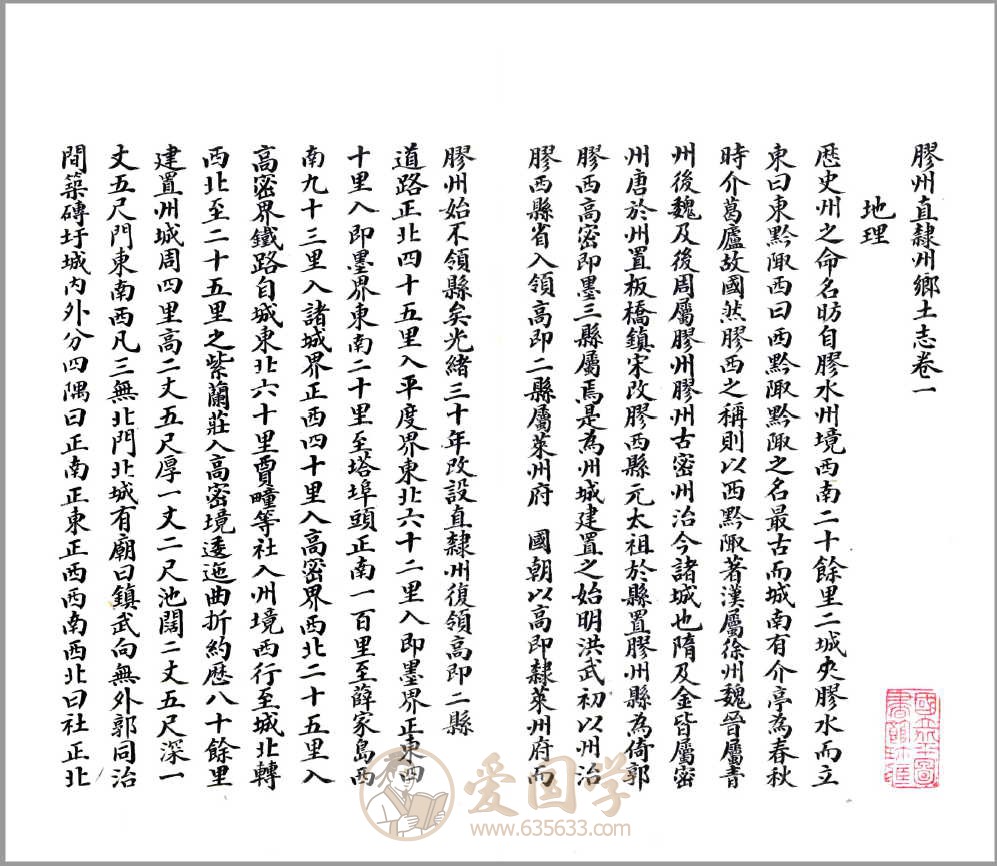 膠州直隸州鄉土志卷一
地理
歷史州之命名昉自膠水州境西南二十餘里二城夾膠水而立
東曰東黔陬西曰西黔陬黔陬之名最古而城南有介亭為春秋
時介葛廬故國然膠西之稱則以西黔陬著漢屬徐州魏晉屬青
州後魏及後周屬膠州膠州古密州治今諸城也隋及金皆屬密
州唐於州置板橋鎮宋改膠西縣元太祖於縣置膠州縣為倚郭
膠西高密即墨三縣屬焉是為州城建置之始明洪武初以州治
膠西縣省入領高即二縣屬萊州府 國朝以高即隸萊州府而
膠州始不領縣矣光緒三十年改設直隸州復領高即二縣
道路正北四十五里入平度界東北六十二里入即墨界正東四
十里入即墨界東南二十里至塔埠頭正南一百里至薛家島西
南九十三里入諸城界正西四十里入高密界西北二十五里入
高密界鐵路自城東北六十里賈疃等社入州境西行至城北轉
西北至二十五里之紫蘭莊入高密境逶迤曲折約歷八十餘里
建置州城周四里高二丈五尺厚一丈二尺池闊二丈五尺深一
丈五尺門東南西凡三無北門北城有廟曰鎮武向無外郭同治
間築磚圩城內外分四隅曰正南正東正西西南西北曰社正北
爱国学
www.635633.com